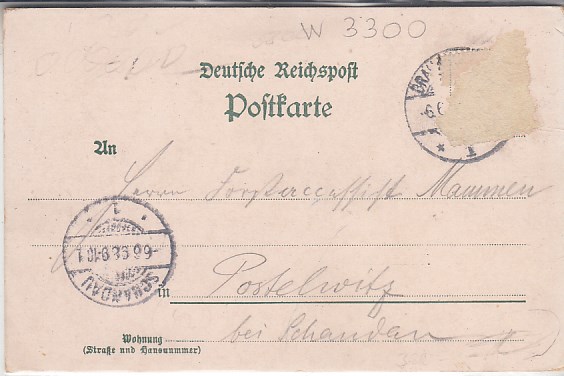 W 3300
Deutsche Reichspost
Postkarte
An
Herrn Forstassessist Mammen
in Postelwitz
bei Schandau
Wohnung
(Straße und Hausnummer)
SCHANDAU